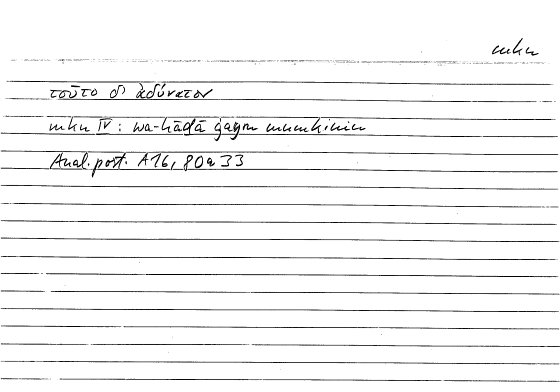 mkn
τοῦτο δ' ἀδύνατον
mkn IV: wa-hāḏā ġayru mumkinin
Anal. post. A16, 80a33